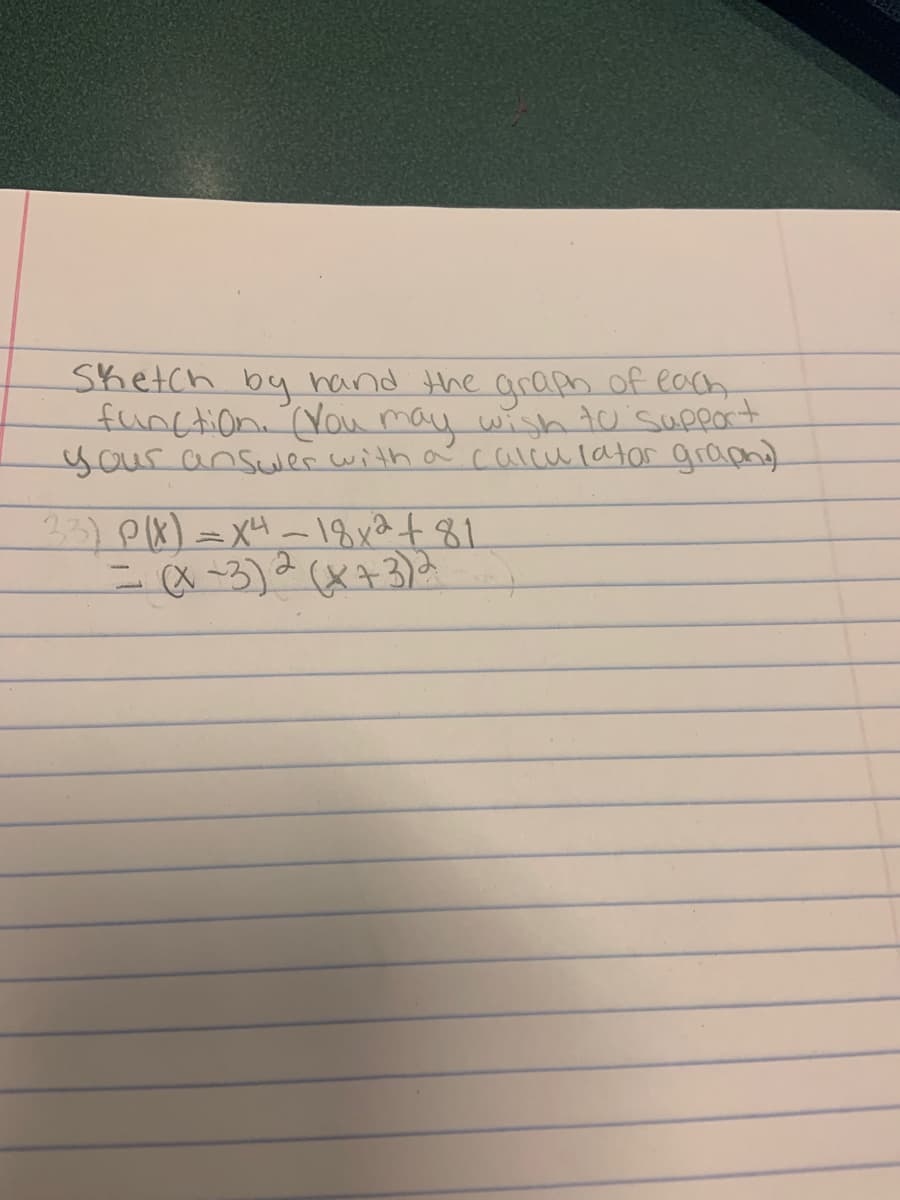 Sketch by hand the graph of each
function. (You may wish to support
your answer with a calculator graph.)
33) P(x) = x⁴ - 18x² + 81
= (x - 3)² (x + 3)²